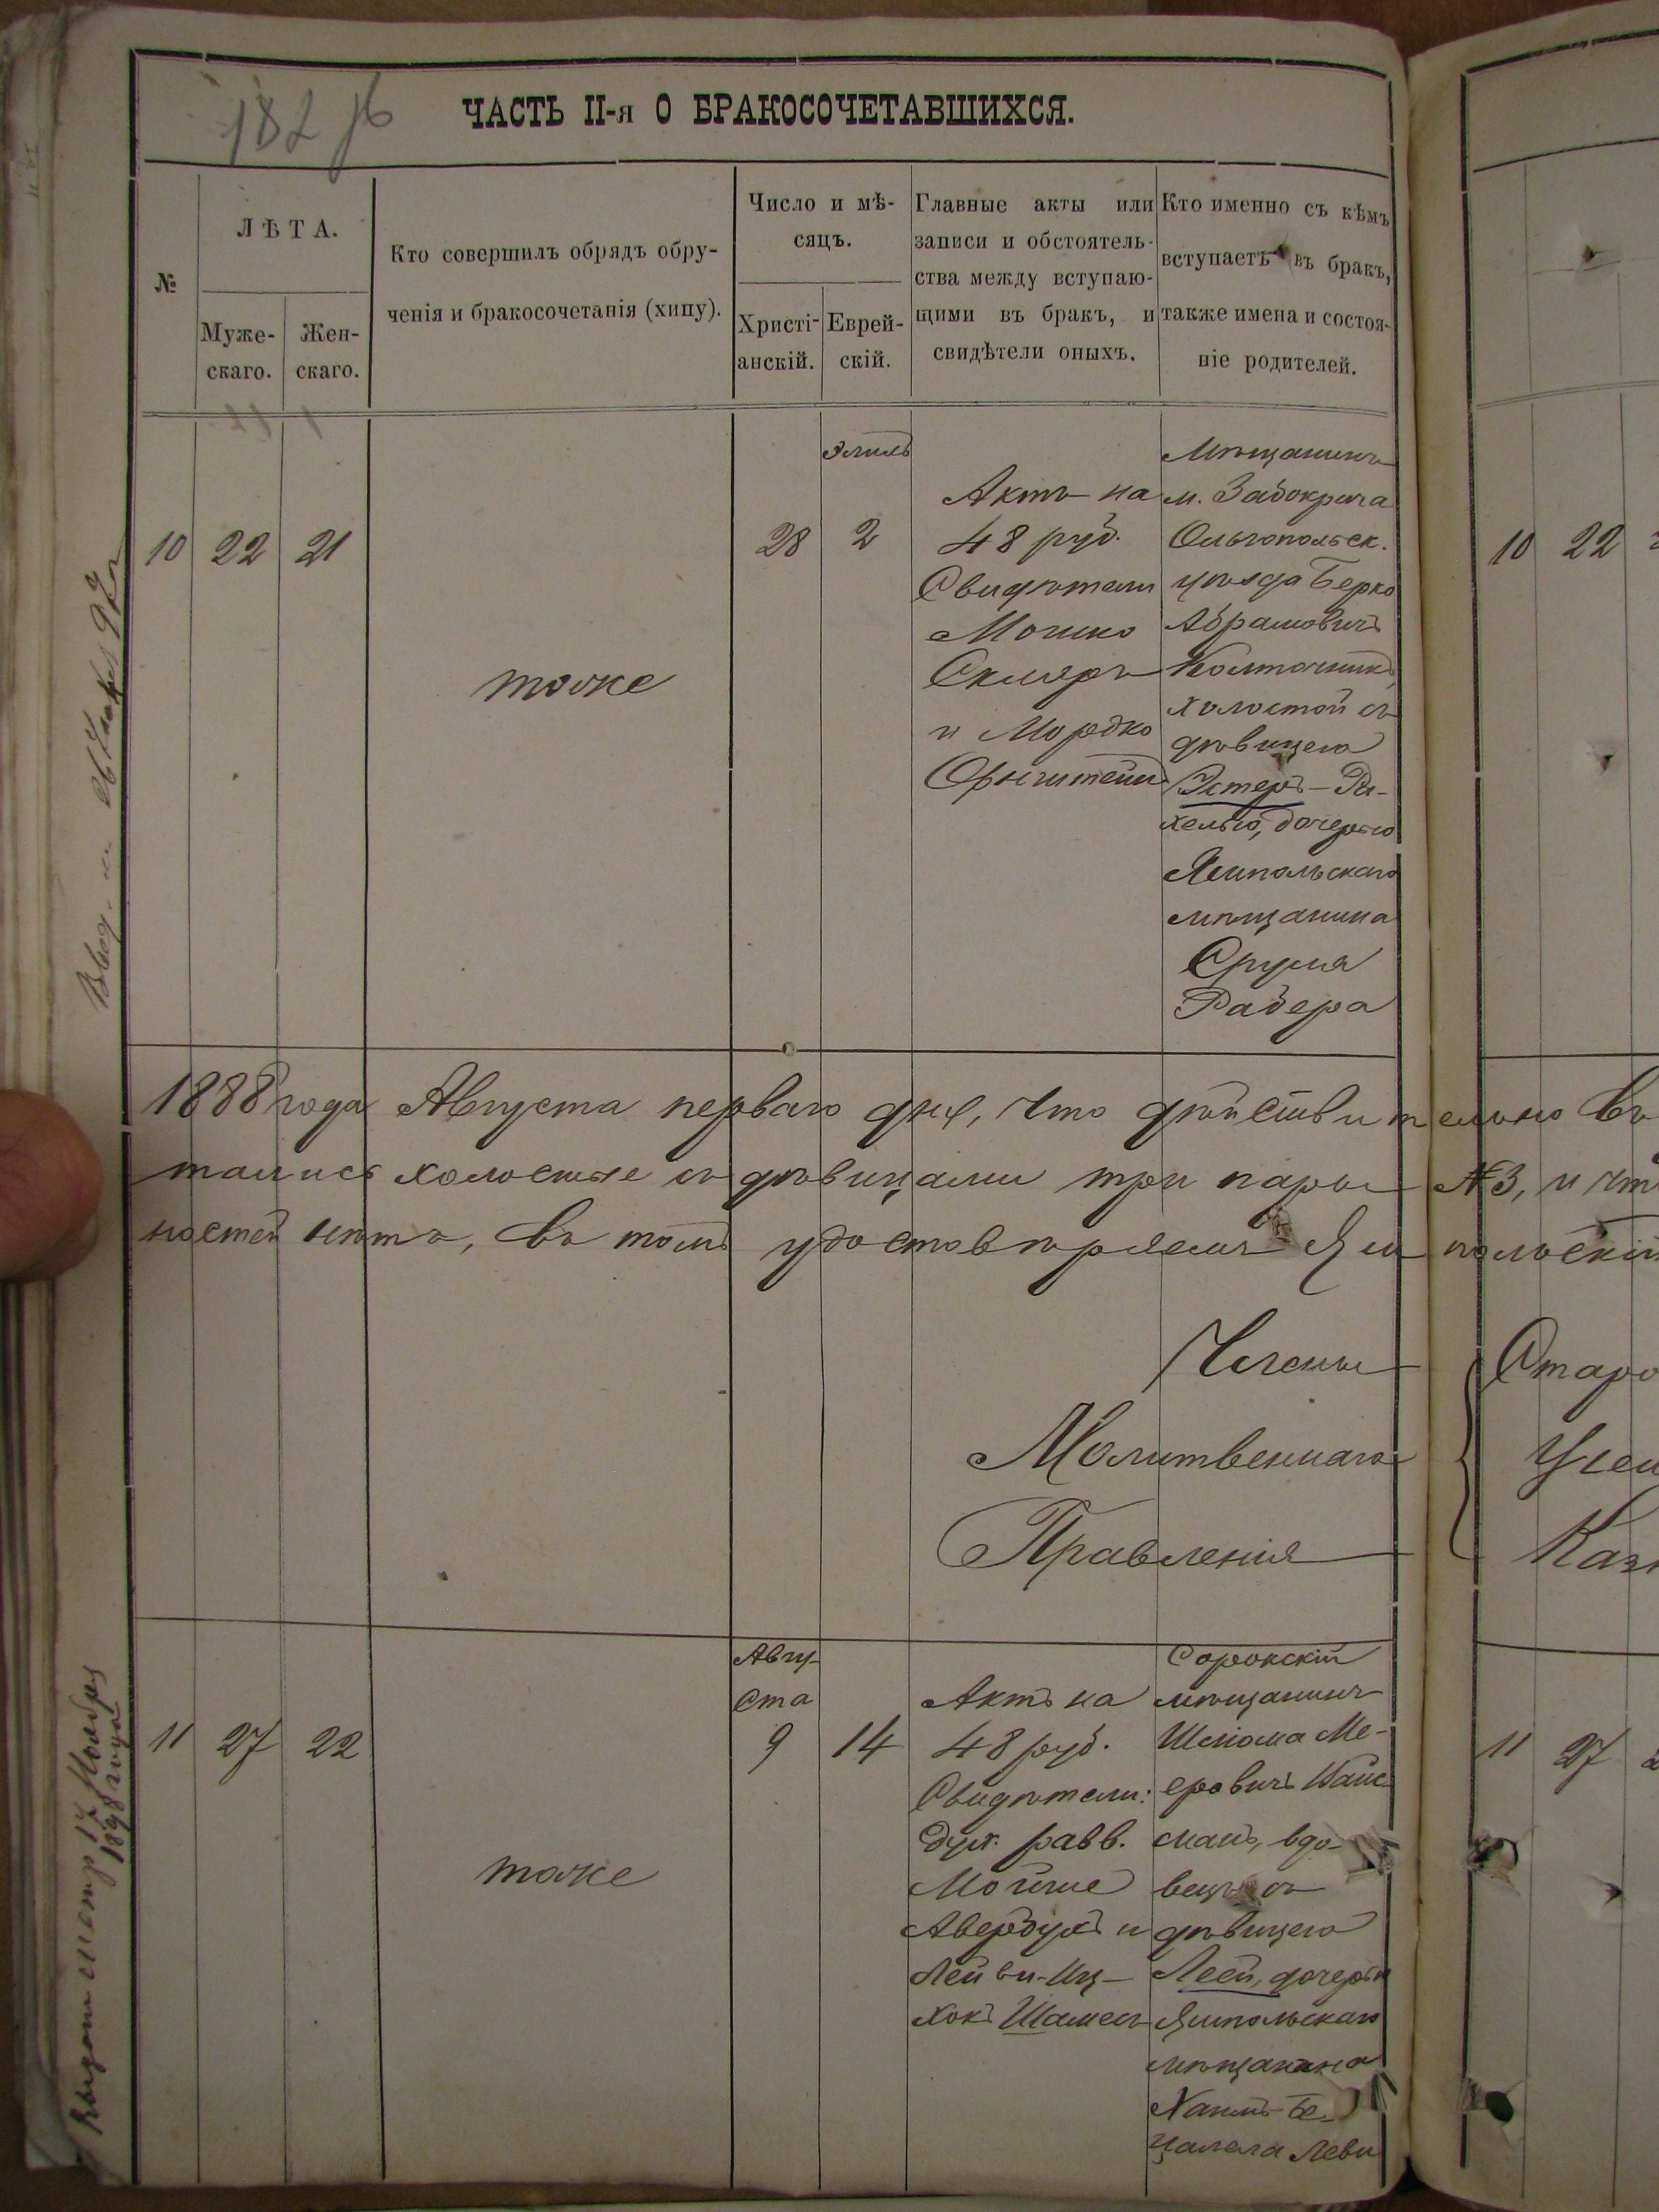 182
ЧАСТЬ II-я О БРАКОСОЧЕТАВШИХСЯ.
№
ЛѢТА.
Муже-
скаго.
Жен-
скаго.
Кто совершилъ обрядъ обру-
ченія и бракосочетанія (хипу).
Число и мѣ-
сяцъ.
Христі-
анскій.
Еврей-
скій.
Главные акты или
записи и обстоятель-
ства между вступаю-
щими въ бракъ, и
свидѣтели оныхъ.
Кто именно съ кѣмъ
вступаетъ въ бракъ,
также имена и состоя-
ніе родителей.
10
22
21
тоже
28
Элилъ
2
Актъ на
48 руб.
Свидѣтели
Мошко
Скляръ
и Мордко
Мѣщанинъ
м. Забокрича
Ольгопольск.
уѣзда Берко
Абрамовичъ
Колточникъ,
холостой съ
дѣвицею
Эстеръ-Ра-
хелью, дочерью
Ямпольскаго
мѣщанина
Срула
Рабера
10 22
1888 года Августа перваго дня, что дѣйствительно въ
тались холостые съ дѣвицами три пары №3, и что
ностей нѣтъ, въ томъ удостовѣряемъ Ямпольскій
Члены
Молитвеннаго
Правленія
Старо
Учен
Казн
11
27
22
тоже
Авгу-
ста
9
14
Актъ на
48 руб.
Свидѣтели:
Дух. равв.
Мойше
Авербухъ и
Лейви-Иц-
хокъ Шамесъ
Сорокскій
мѣщанинъ
Шліома Ме-
еровичъ Вайс-
манъ, вдо-
вецъ съ
дѣвицею
Леей, дочерью
Ямпольскаго
мѣщанина
Хаимъ-Бе-
цалела Леви
11 27